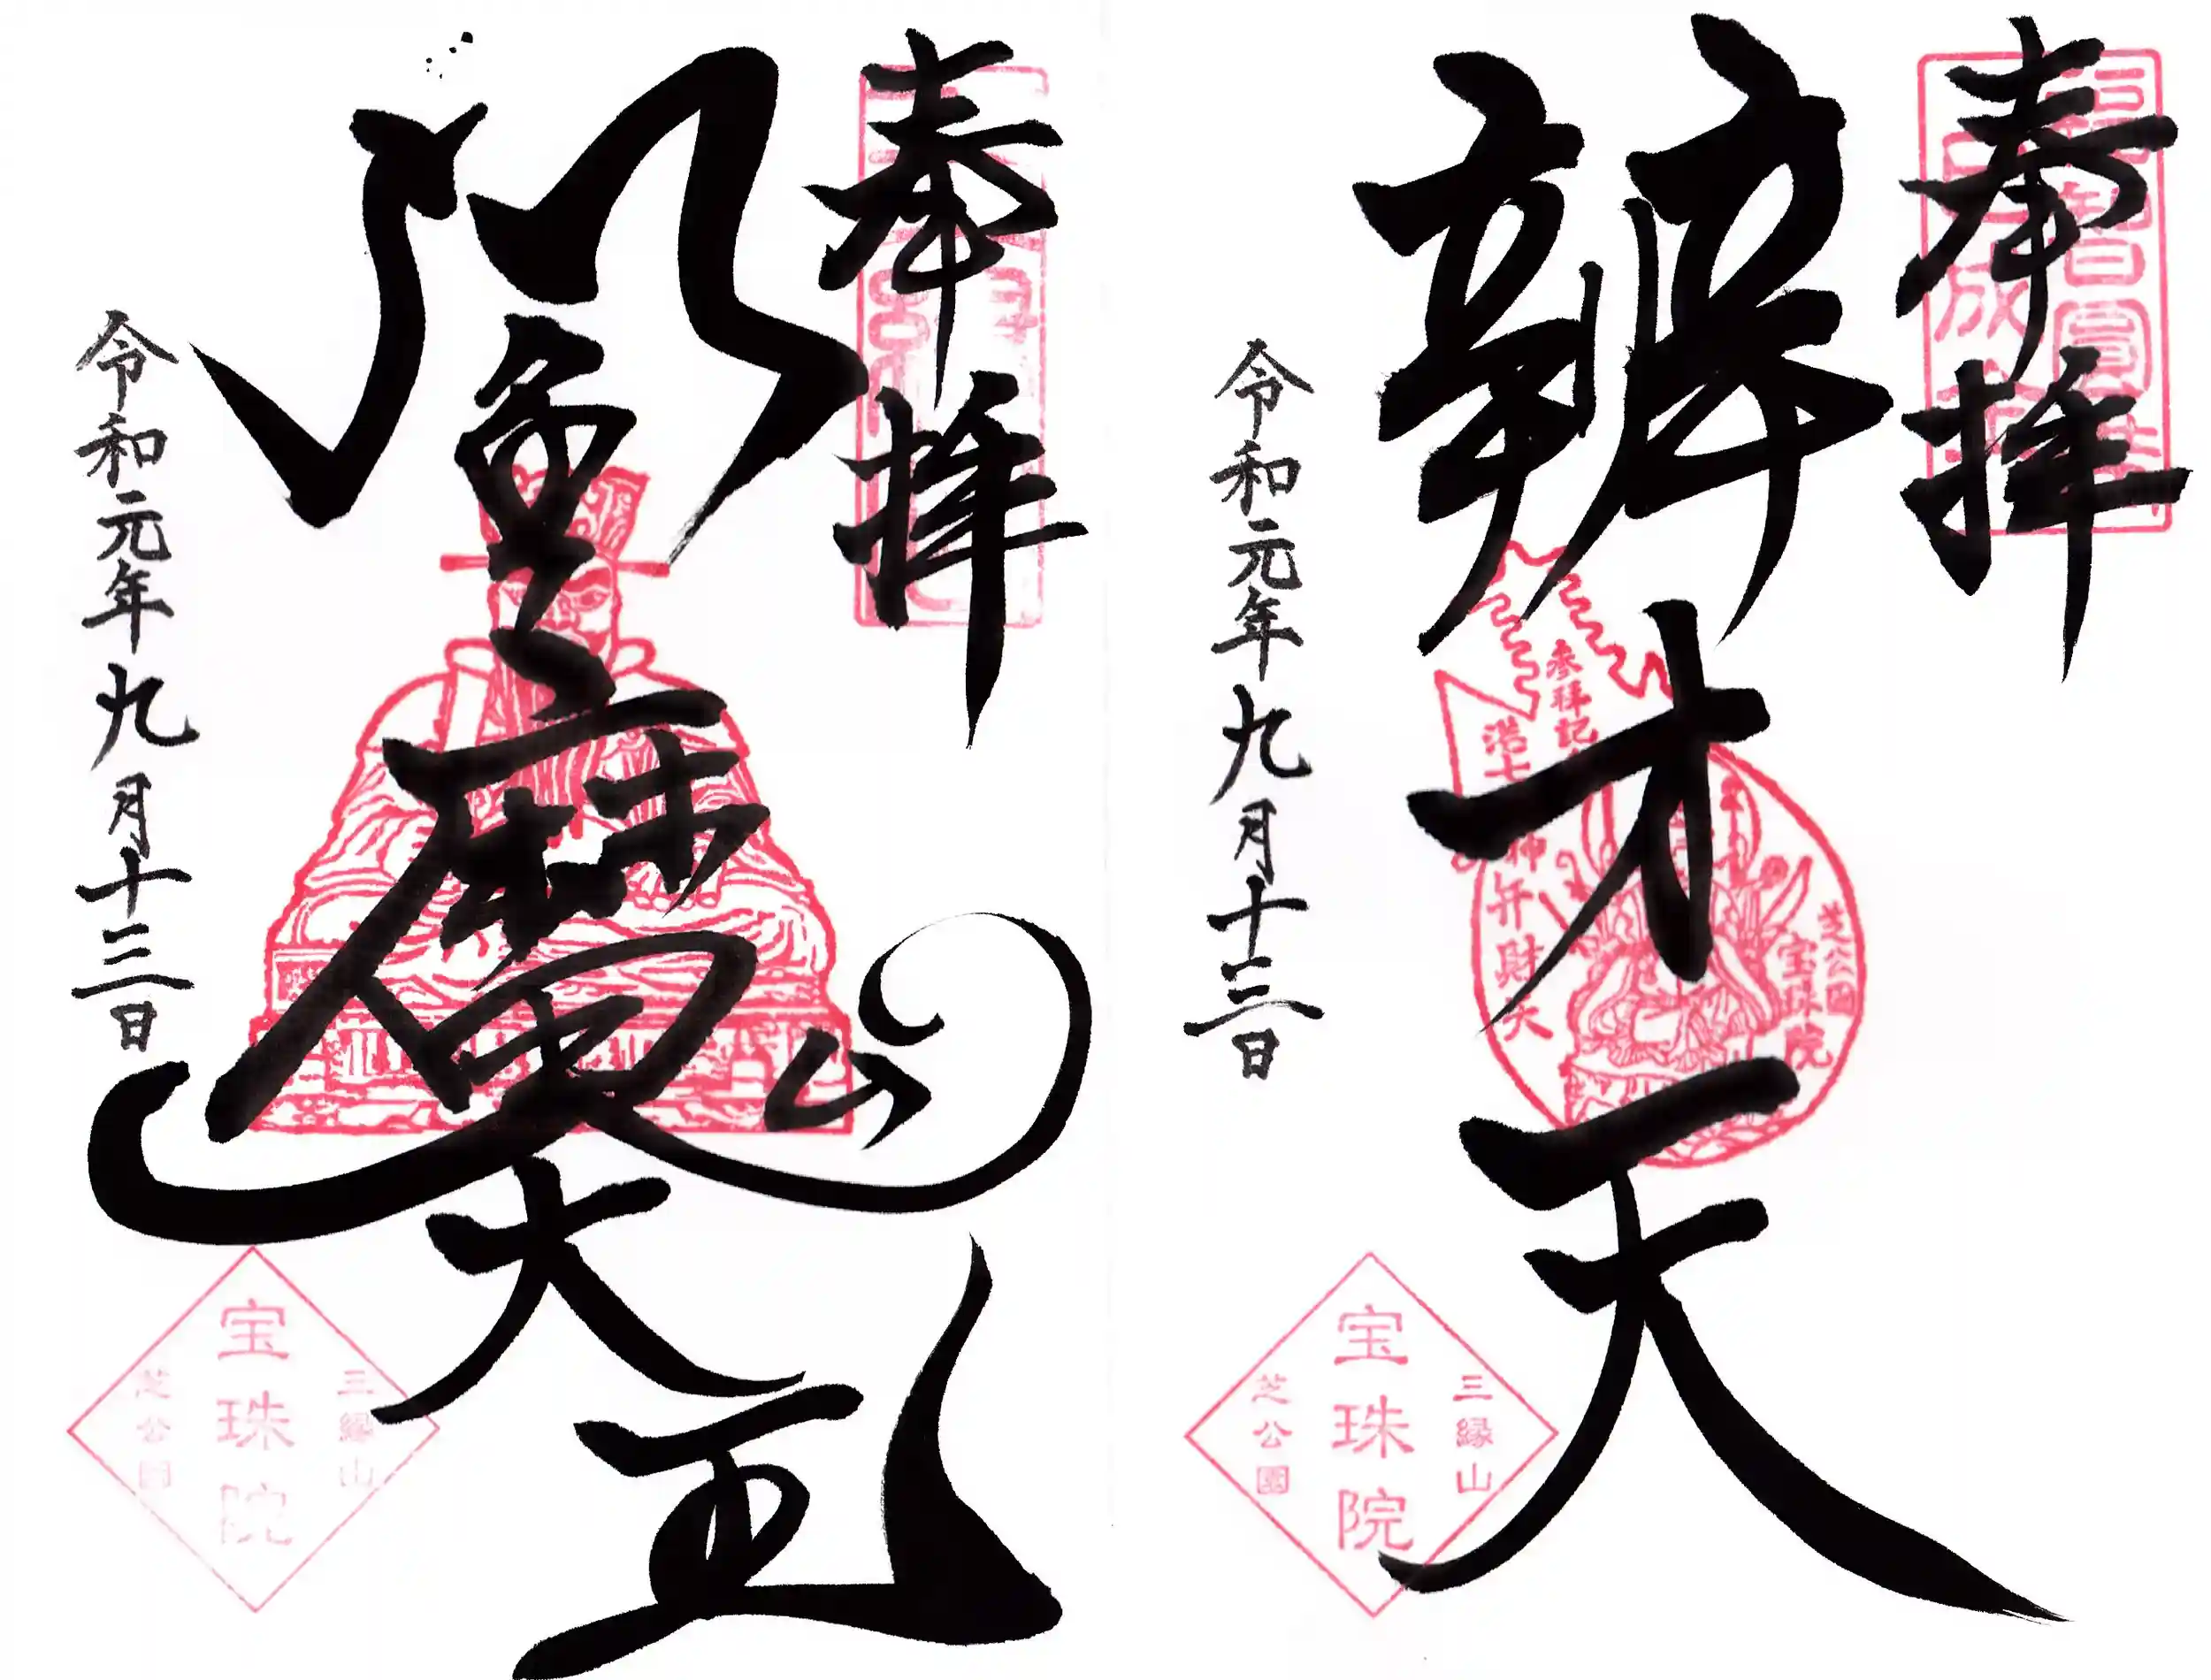 奉拝
辨才天
参拝記
港七
神弁財天
芝公園
宝珠院
令和元年九月十三日
三縁山
宝珠院
芝公園
奉拝
閻魔大王
令和元年九月十三日
三縁山
宝珠院
芝公園